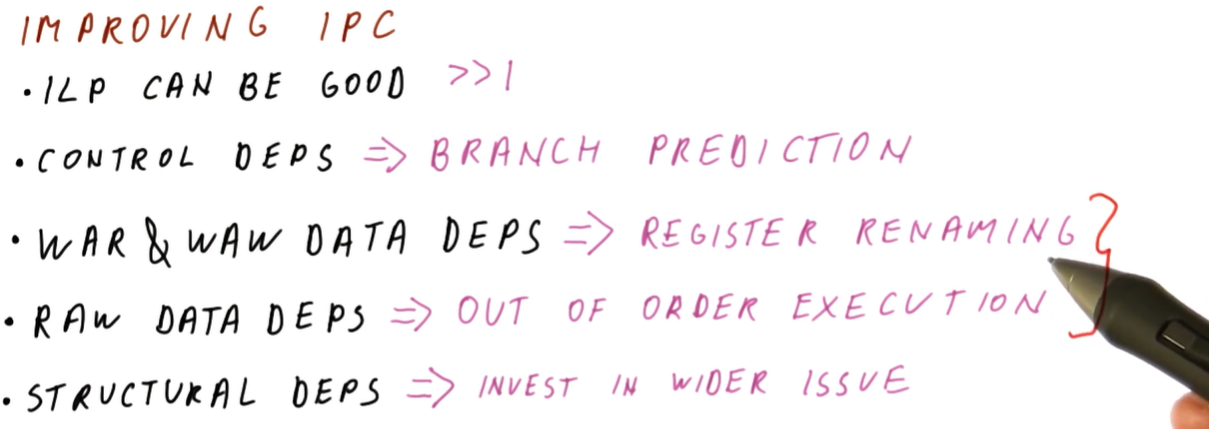 IMPROVING IPC
• ILP CAN BE GOOD >>1
• CONTROL DEPS => BRANCH PREDICTION
• WAR & WAW DATA DEPS => REGISTER RENAMING }
• RAW DATA DEPS => OUT OF ORDER EXECUTION
• STRUCTURAL DEPS => INVEST IN WIDER ISSUE